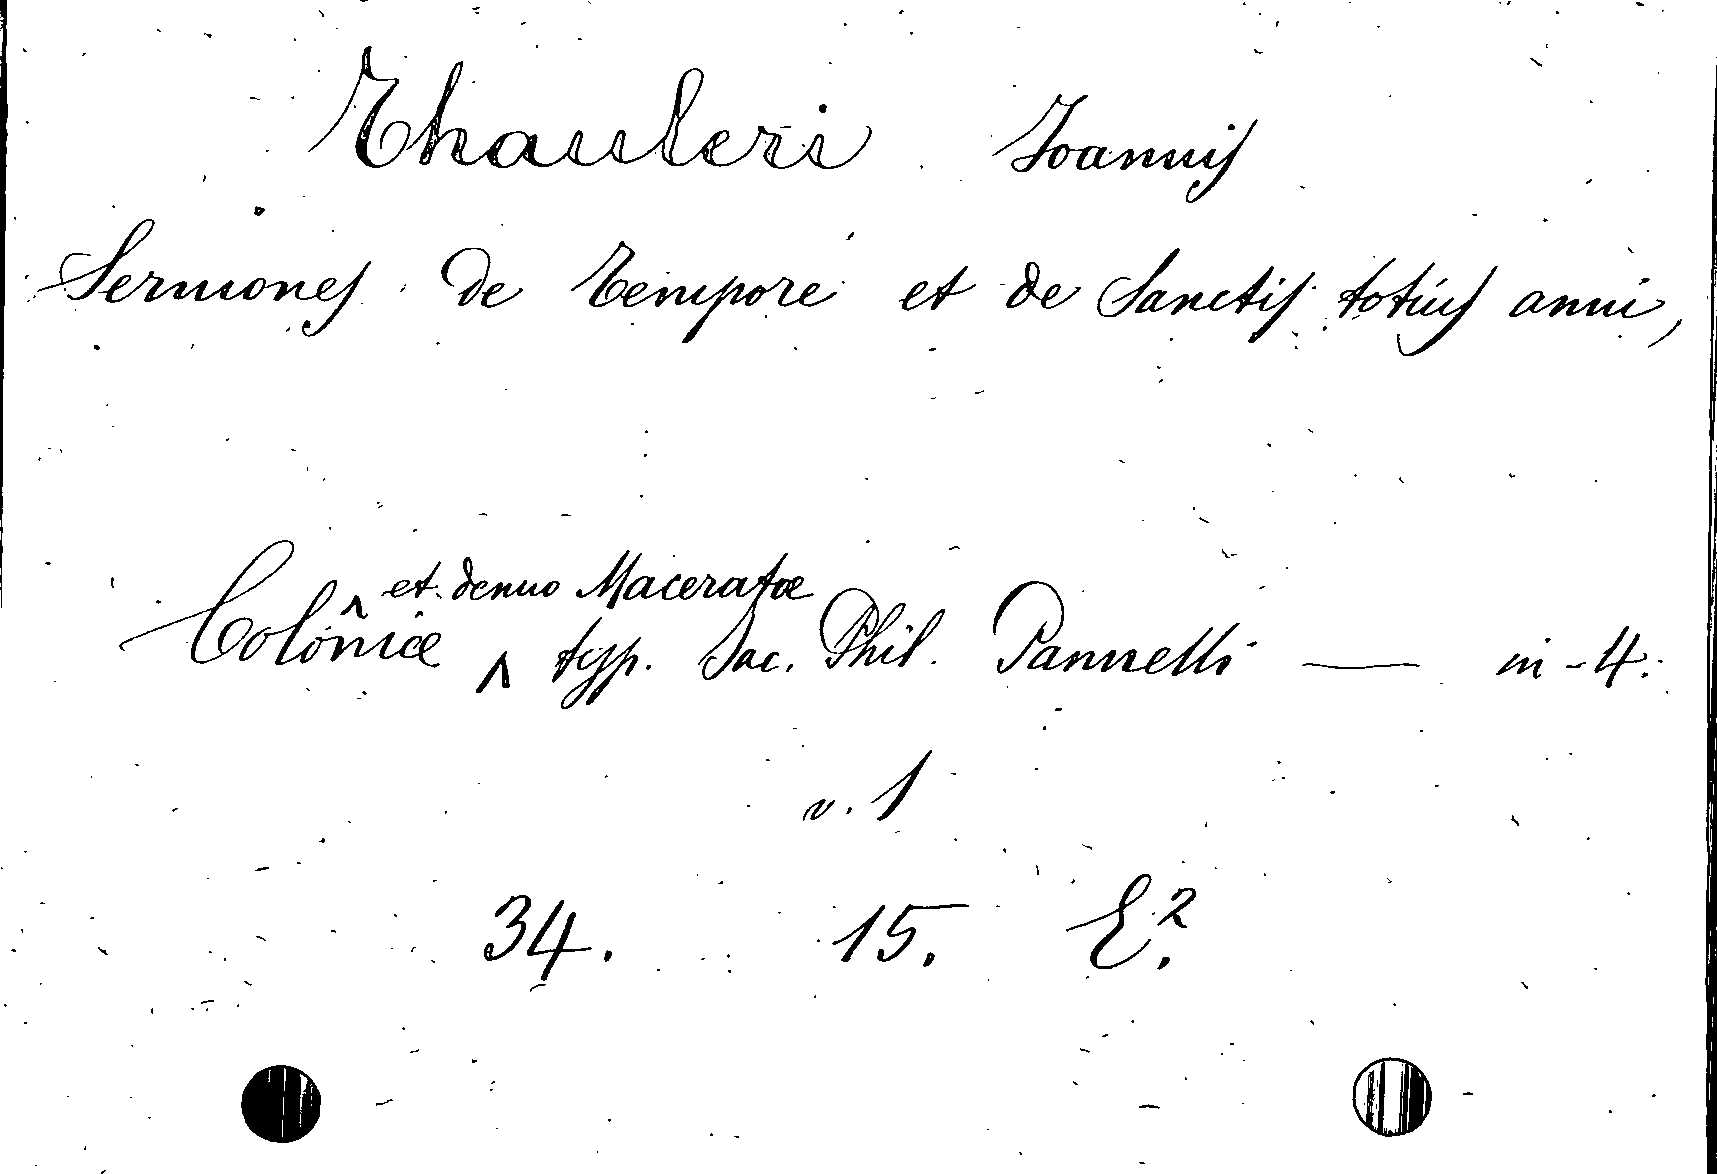 Thauleri Joannis
Sermones de Tempore et de Sanctis totius anni,
et denuo Maceratæ
Coloniæ ^ typ. Jac. Phil. Pannelli — in-4.
v. 1
34. 15. E².